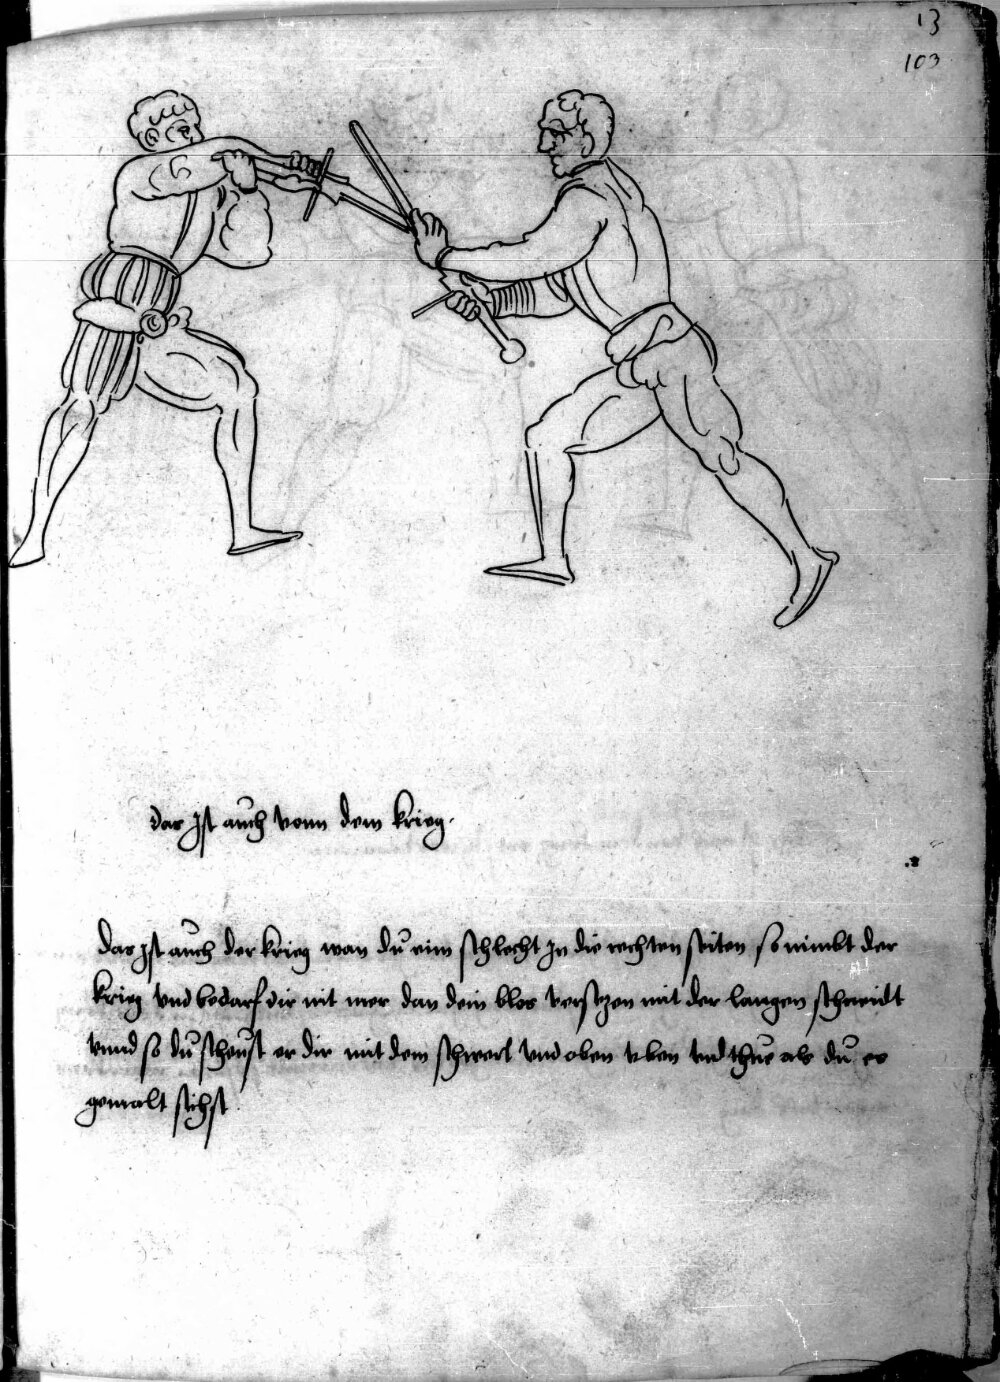 13
103
das Ist auch vonn dem krieg.
das Ist auch der krieg wan du eim schlecht In die rechten seiten so nimbt der
krieg vnd bedarf dir nit mer dan dein blos versezen mit der langen schneidt
vnnd so du scheust er dir mit dem schwert vnd oben vben vnd thue als du es
gemalt sihst